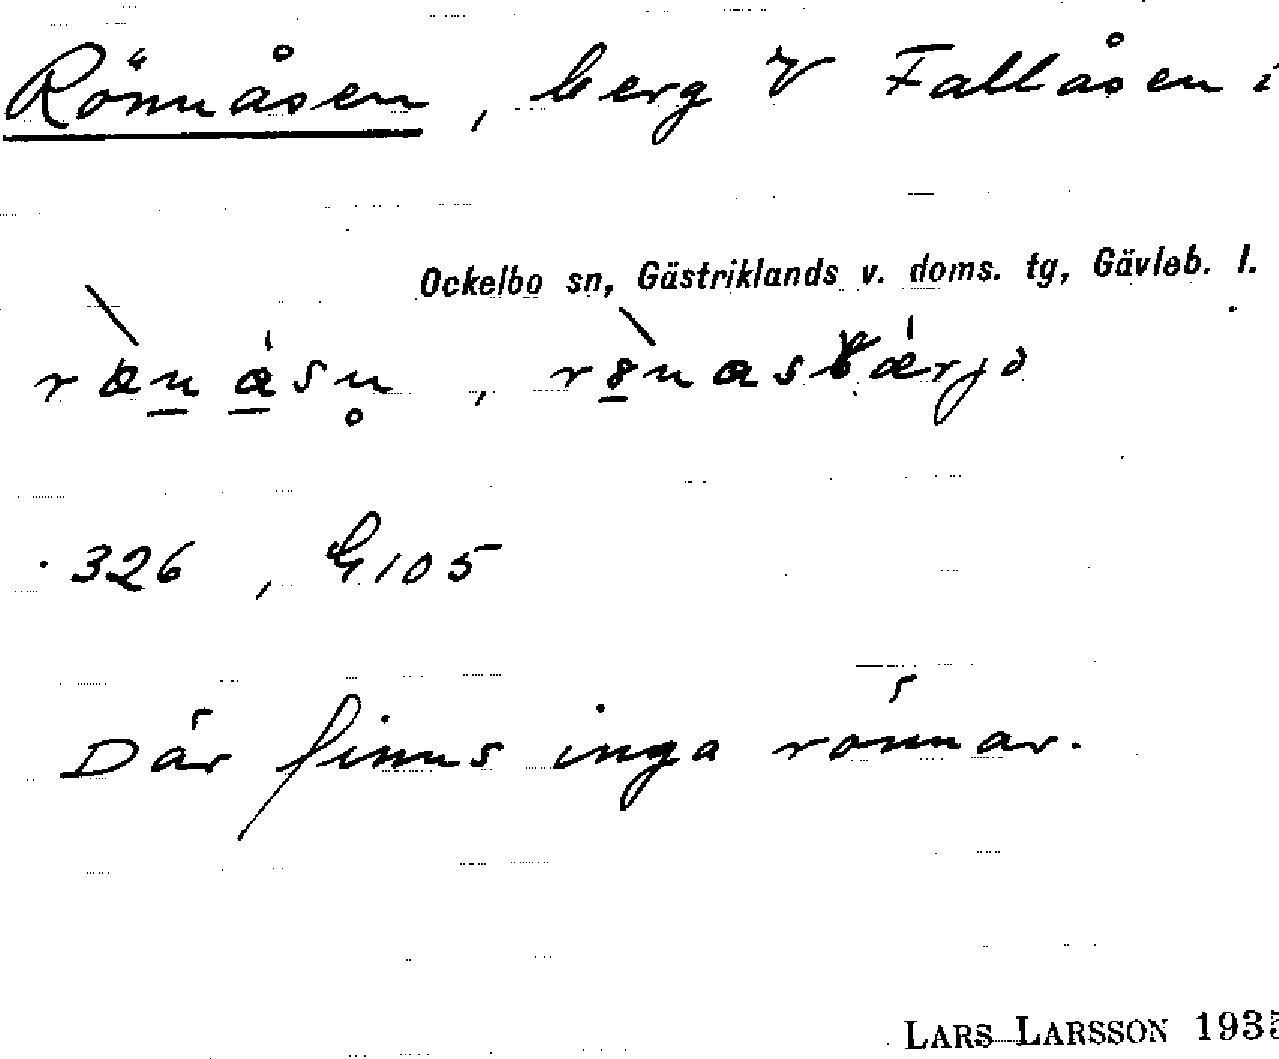 Rönnåsen, berg V Fallåsen i
Ockelbo sn, Gästriklands v. doms. tg, Gävleb. l.
· 326, G105
Där finns inga rönnar.
LARS LARSSON 193